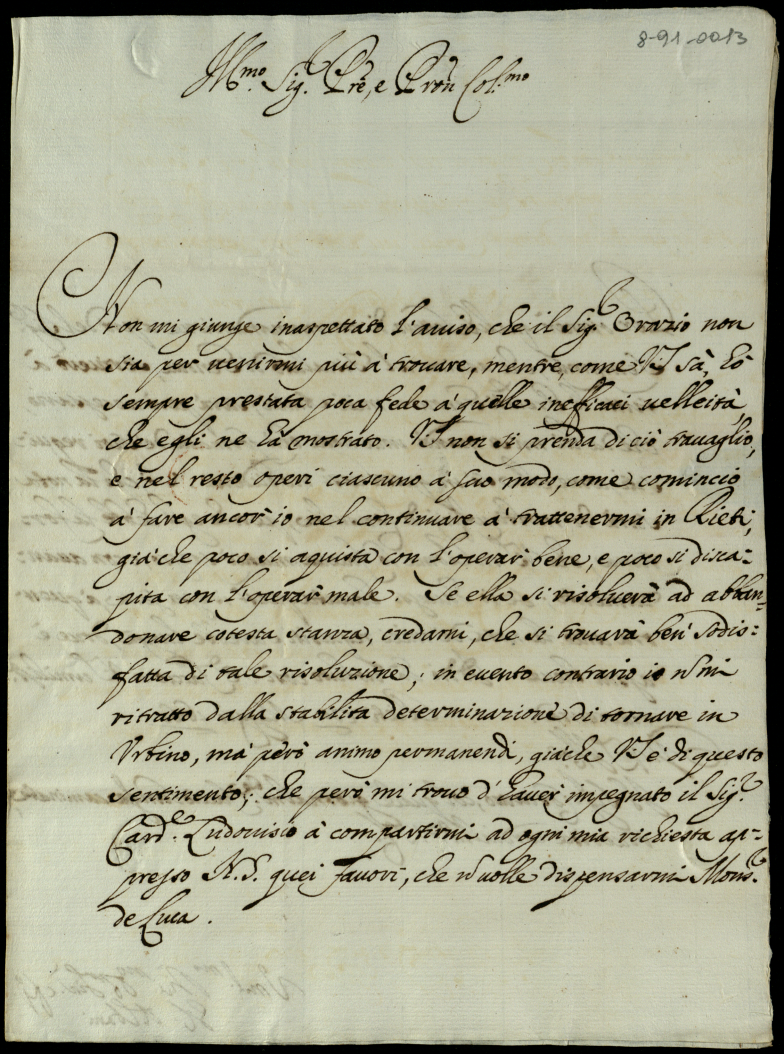 8-91-0013
Ill.mo Sig.r Prē, e Prōn Col.mo
Non mi giunge inaspettato l'auiso, che il Sig.r Orazio non
sia per uenirmi più à trouare, mentre, come VS sà, hò
sempre prestata poca fede a' quelle inefficaci uelleità,
che egli ne hà mostrato. VS non si prenda di ciò trauaglio,
e nel resto operi ciascuno à suo modo, come comincio
à fare ancor' io nel continuare à trattenermi in Rieti,
già che poco si aquista con l'operar' bene, e poco si disca=
pita con l'operar' male. Se ella si risoluerà ad abban=
donare cotesta stanza, credami, che si trouarà ben' sodis=
fatta di tale risoluzione; in euento contrario io ñ mi
ritratto dalla stabilita determinazione di tornare in
Vrbino, mà però animo permanendi, già che VS è di questo
sentimento; che però mi trouo d'hauer' impegnato il Sig.r
Card.e Ludouisio à compartirmi ad ogni mia richiesta ap=
presso N.S. quei fauori, che ñ uolle dispensarmi Mons.r
de Luca.